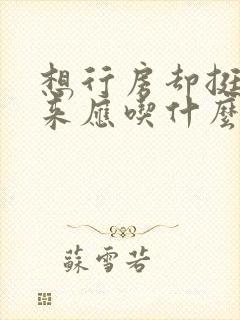 想行房却挺
来应吃什麼
蘇雪若